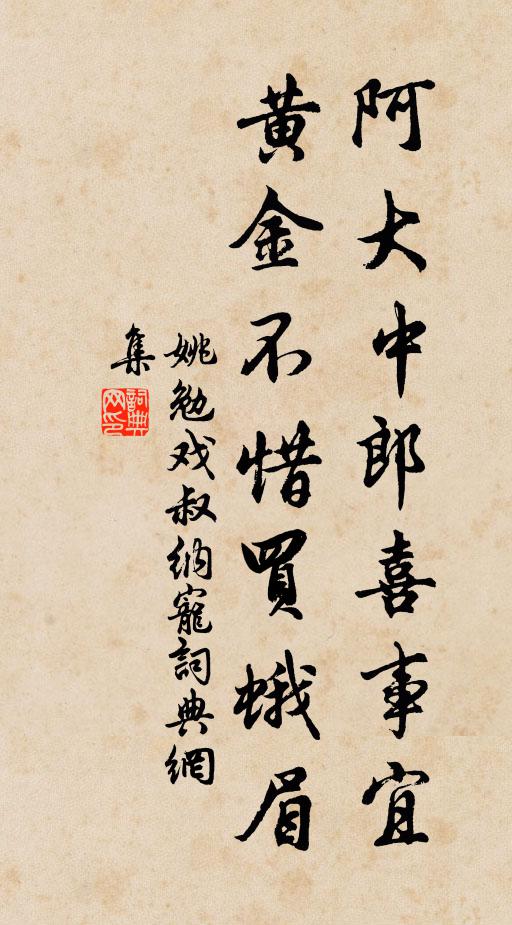 阿大中郎喜事宜
黄金不惜買蛾眉
姚勉戏叔納寵詞典網
集
詞典
网印